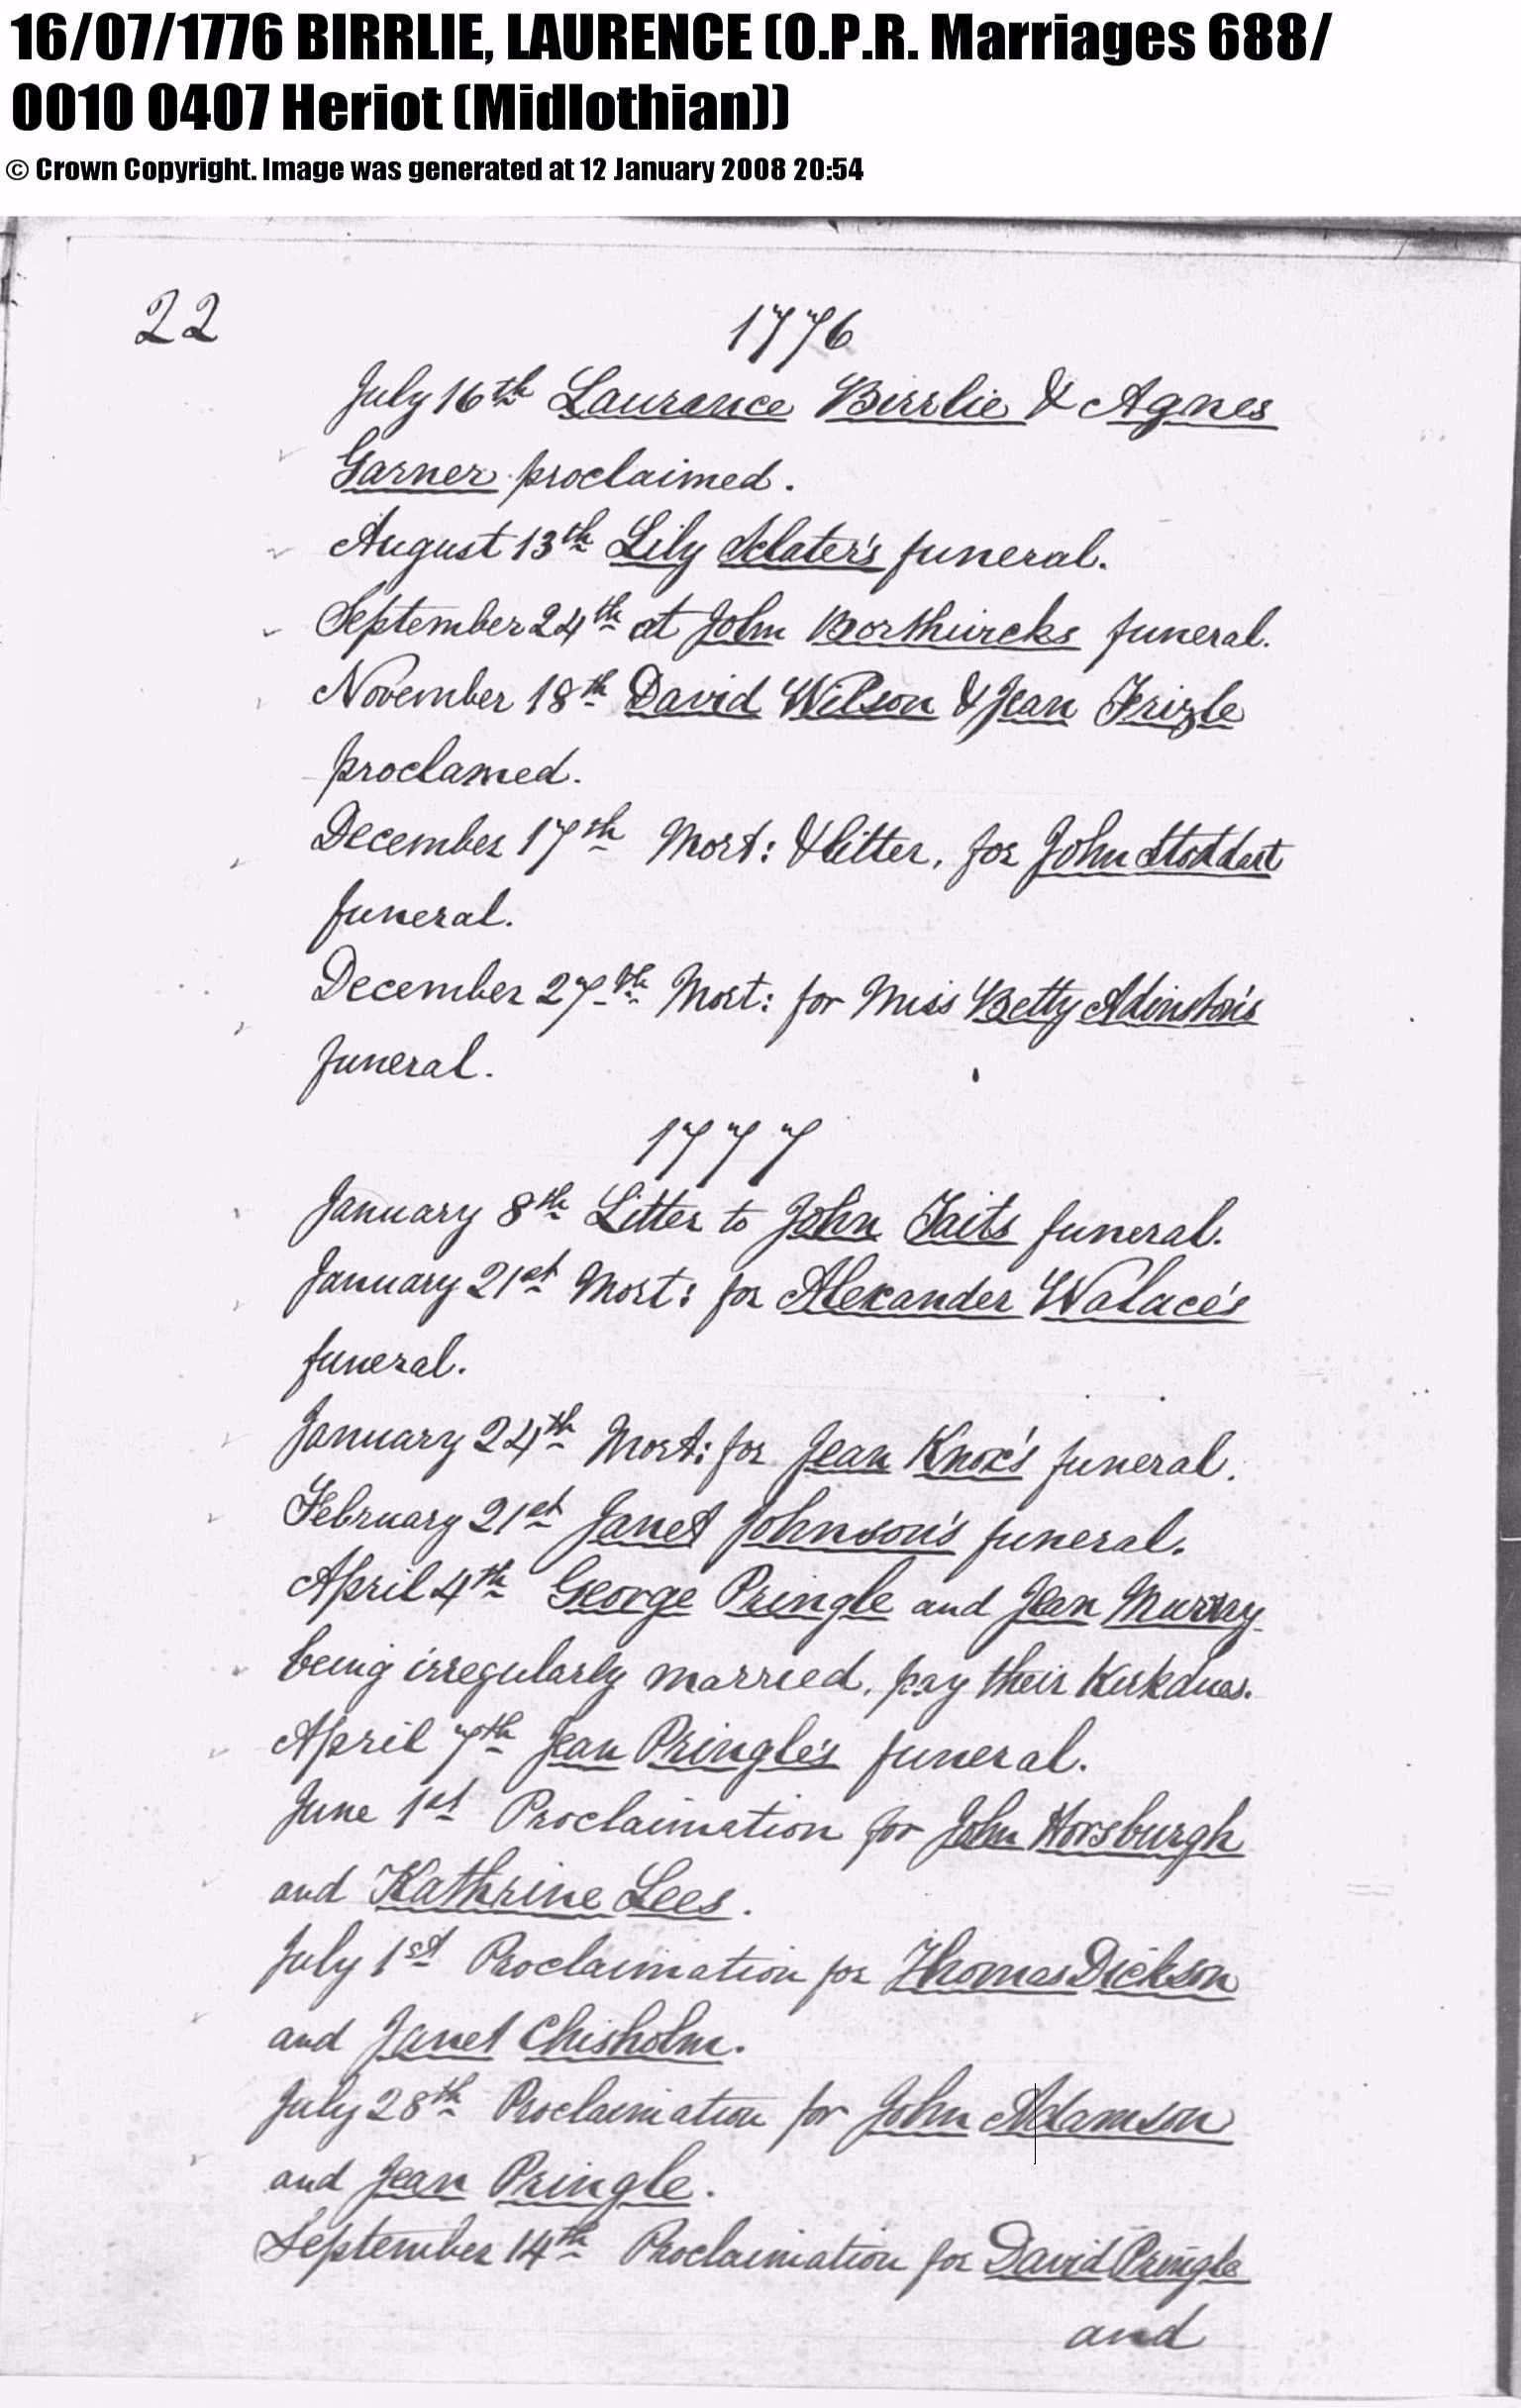 16/07/1776 BIRRLIE, LAURENCE (O.P.R. Marriages 688/
0010 0407 Heriot (Midlothian))
© Crown Copyright. Image was generated at 12 January 2008 20:54
22
1776
July 16th Laurance Birrlie & Agnes
Garner proclaimed.
August 13th Lily Sclater's funeral.
September 24th at John Borthwicks funeral.
November 18th David Wilson & Jean Frizle
proclamed.
December 17th Mort: & litter, for John Stoddart
funeral.
December 27th Mort: for Miss Betty Adinston's
funeral.
1777
January 8th Litter to John Taits funeral.
January 21st Mort: for Alexander Walace's
funeral.
January 24th Mort: for Jean Knox's funeral.
February 21st Janet Johnson's funeral.
April 4th George Pringle and Jean Murray
being irregularly married, pay their Kirkdues.
April 7th Jean Pringle's funeral.
June 1st Proclaimation for John Horsburgh
and Kathrine Lees.
July 1st Proclaimation for Thomas Dickson
and Janet Chisholm.
July 28th Proclaimation for John Adamson
and Jean Pringle.
September 14th Proclaimation for David Pringle
and